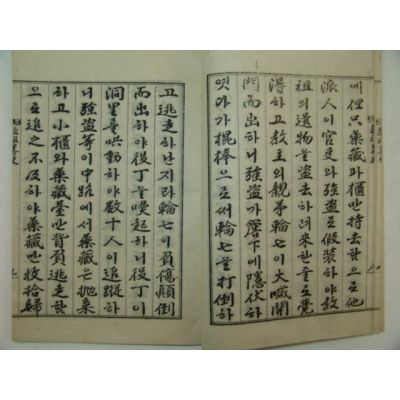 에但只藥藏과櫃만持去한으로他
派人이官吏와強盜로假裝하야放
祖의遺物을盜去하려來한줄로覺
得하고敎主의親弟輪七이大喊開
門而出하니強盜가簷下에隱伏하
엿다가棍棒으로써輪七를打倒하
고逃走하난지라輪七이負傷顚倒
而出하야役丁을喚起하니役丁이
洞里를哄動하야数十人이追蹤하
니強盜等이中路에서藥藏은抛棄
하고小櫃와藥藏臺만背負逃走한
으로追之不及하야藥藏만收拾歸